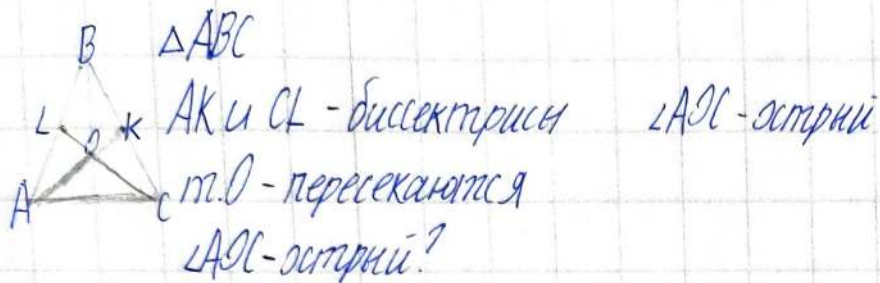 B △ABC
L O K AK и CL - биссектрисы ∠AOC - острый
A C т.O - пересекаются
∠AOC - острый?